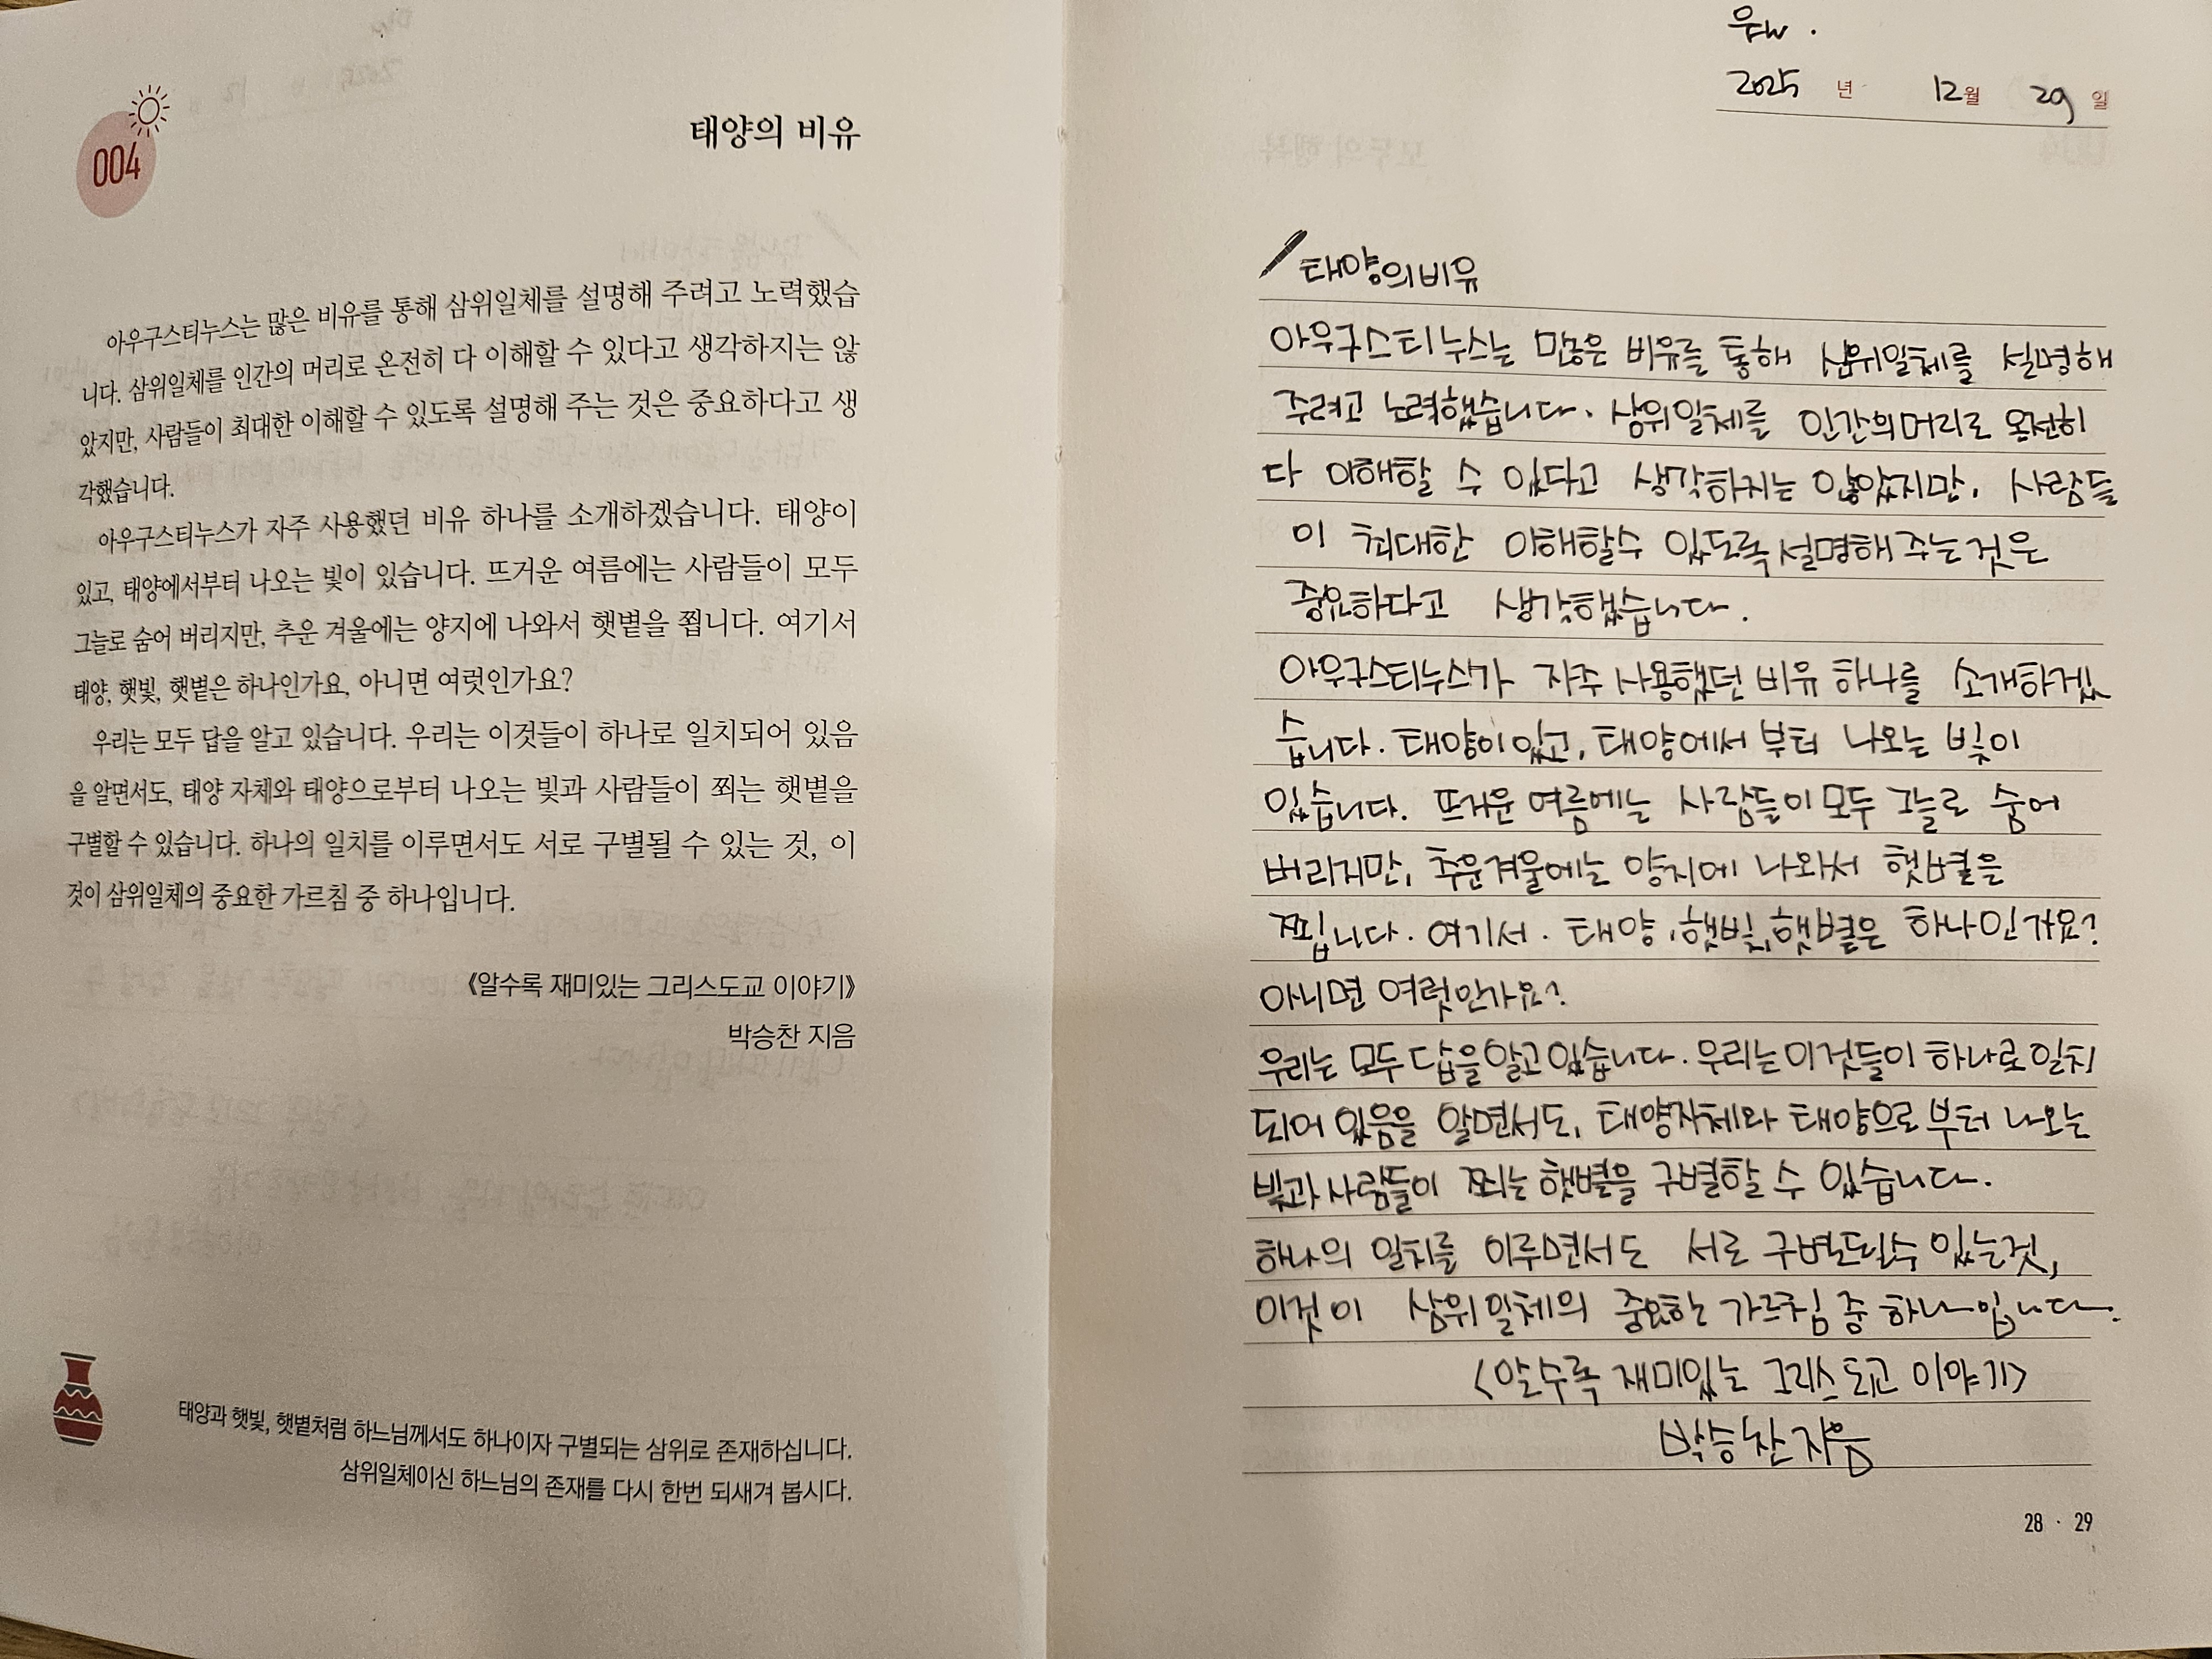 004
태양의 비유
아우구스티누스는 많은 비유를 통해 삼위일체를 설명해 주려고 노력했습
니다. 삼위일체를 인간의 머리로 온전히 다 이해할 수 있다고 생각하지는 않
았지만, 사람들이 최대한 이해할 수 있도록 설명해 주는 것은 중요하다고 생
각했습니다.
아우구스티누스가 자주 사용했던 비유 하나를 소개하겠습니다. 태양이
있고, 태양에서부터 나오는 빛이 있습니다. 뜨거운 여름에는 사람들이 모두
그늘로 숨어 버리지만, 추운 겨울에는 양지에 나와서 햇볕을 쬡니다. 여기서
태양, 햇빛, 햇볕은 하나인가요, 아니면 여럿인가요?
우리는 모두 답을 알고 있습니다. 우리는 이것들이 하나로 일치되어 있음
을 알면서도, 태양 자체와 태양으로부터 나오는 빛과 사람들이 쬐는 햇볕을
구별할 수 있습니다. 하나의 일치를 이루면서도 서로 구별될 수 있는 것, 이
것이 삼위일체의 중요한 가르침 중 하나입니다.
《알수록 재미있는 그리스도교 이야기》
박승찬 지음
태양과 햇빛, 햇볕처럼 하느님께서도 하나이자 구별되는 삼위로 존재하십니다.
삼위일체이신 하느님의 존재를 다시 한번 되새겨 봅시다.
2025 년 12월 29 일
태양의 비유
아우구스티누스는 많은 비유를 통해 삼위일체를 설명해
주려고 노력했습니다. 삼위일체를 인간의 머리로 온전히
다 이해할 수 있다고 생각하지는 않았지만, 사람들
이 최대한 이해할수 있도록 설명해 주는 것은
중요하다고 생각했습니다.
아우구스티누스가 자주 사용했던 비유 하나를 소개하겠
습니다. 태양이 있고, 태양에서 부터 나오는 빛이
있습니다. 뜨거운 여름에는 사람들이 모두 그늘로 숨어
버리지만, 추운겨울에는 양지에 나와서 햇볕을
쬡니다. 여기서. 태양, 햇빛, 햇볕은 하나인가요?
아니면 여럿인가요?
우리는 모두 답을 알고 있습니다. 우리는 이것들이 하나로 일치
되어 있음을 알면서도, 태양자체와 태양으로 부터 나오는
빛과 사람들이 쬐는 햇볕을 구별할 수 있습니다.
하나의 일치를 이루면서도 서로 구별될수 있는것,
이것이 삼위일체의 중요한 가르침 중 하나입니다.
<알수록 재미있는 그리스도교 이야기>
박승찬 지음
28 · 29